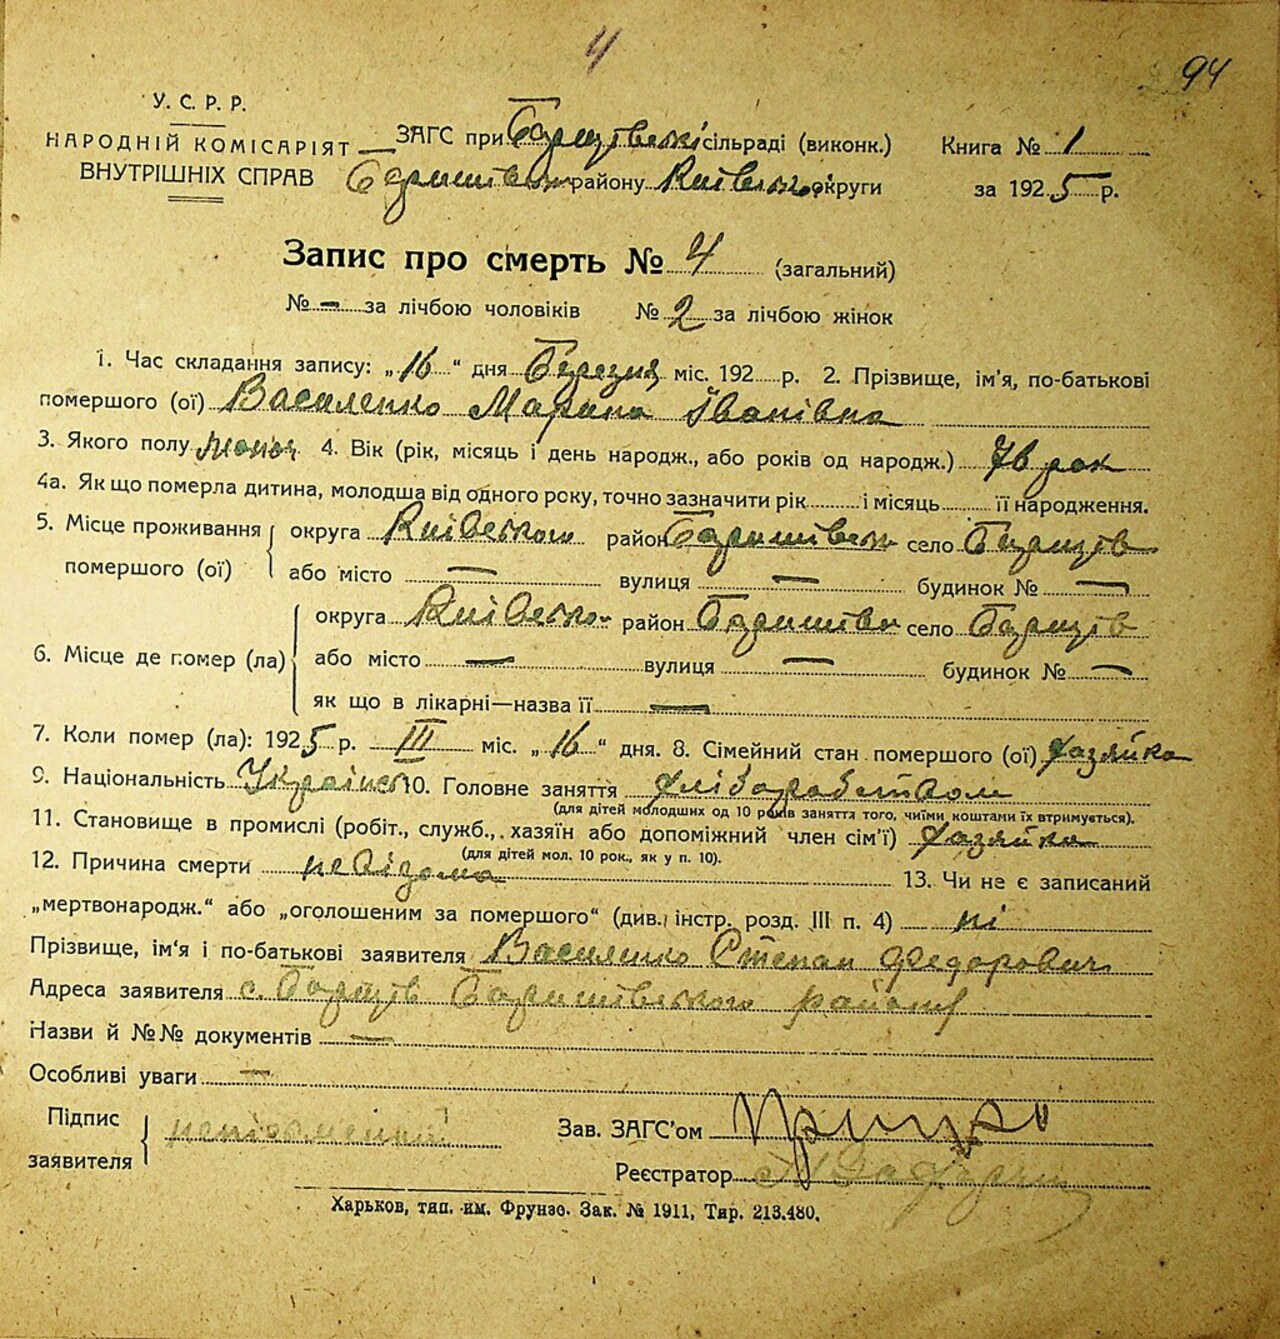 4
94
У. С. Р. Р.
НАРОДНІЙ КОМІСАРІЯТ
ВНУТРІШНІХ СПРАВ
ЗАГС при сільраді (виконк.)
району Київської округи
Книга № 1
за 1925 р.
Запис про смерть № 4 (загальний)
№ — за лічбою чоловіків № 2 за лічбою жінок
1. Час складання запису: „16“ дня Березня міс. 192 р. 2. Прізвище, ім'я, по-батькові
помершого (ої) Василенко Марина Іванівна
3. Якого полу жіноч 4. Вік (рік, місяць і день народж., або років од народж.) 76 рок
4а. Як що померла дитина, молодша від одного року, точно зазначити рік і місяць її народження.
5. Місце проживання помершого (ої) округа Київського район Баришівськ село
або місто — вулиця — будинок № —
6. Місце де помер (ла) округа Київсько район Баришівськ село
або місто — вулиця — будинок № —
як що в лікарні—назва її —
7. Коли помер (ла): 1925 р. III міс. „16“ дня. 8. Сімейний стан помершого (ої) хазяйка
9. Національність Українс 10. Головне заняття хліборобством
(для дітей молодших од 10 років заняття того, чиїми коштами їх втримується).
11. Становище в промислі (робіт., служб., хазяїн або допоміжний член сім'ї) хазяйка
(для дітей мол. 10 рок., як у п. 10).
12. Причина смерти невідома 13. Чи не є записаний
„мертвонародж.“ або „оголошеним за помершого“ (див. інстр. розд. III п. 4) ні
Прізвище, ім'я і по-батькові заявителя Василенко Степан Федорович
Адреса заявителя с. Баришівського району
Назви й №№ документів —
Особливі уваги —
Підпис заявителя неписьменний
Зав. ЗАГС'ом
Реєстратор
Харьков, тип. им. Фрунзе. Зак. № 1911, Тир. 213.480.